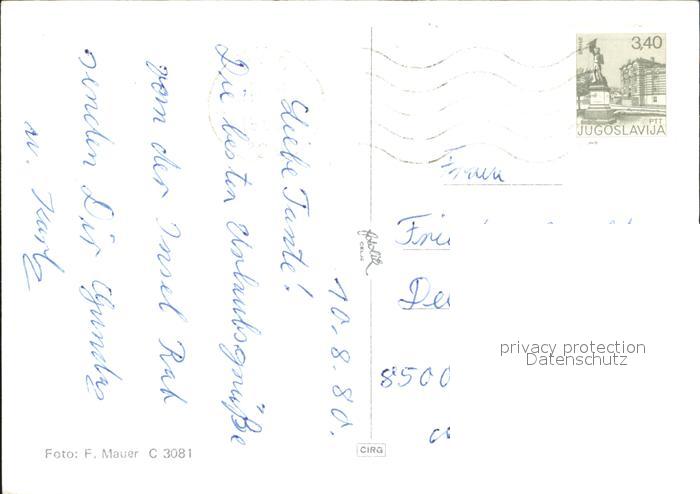 10.8.80.
Liebe Tante!
Die besten Urlaubsgrüße
vom der Insel Rab
senden Dir
u. Karl
3,40
PTT
JUGOSLAVIJA
Frau
8500
privacy protection
Datenschutz
CIRG
Foto: F. Mauer C 3081